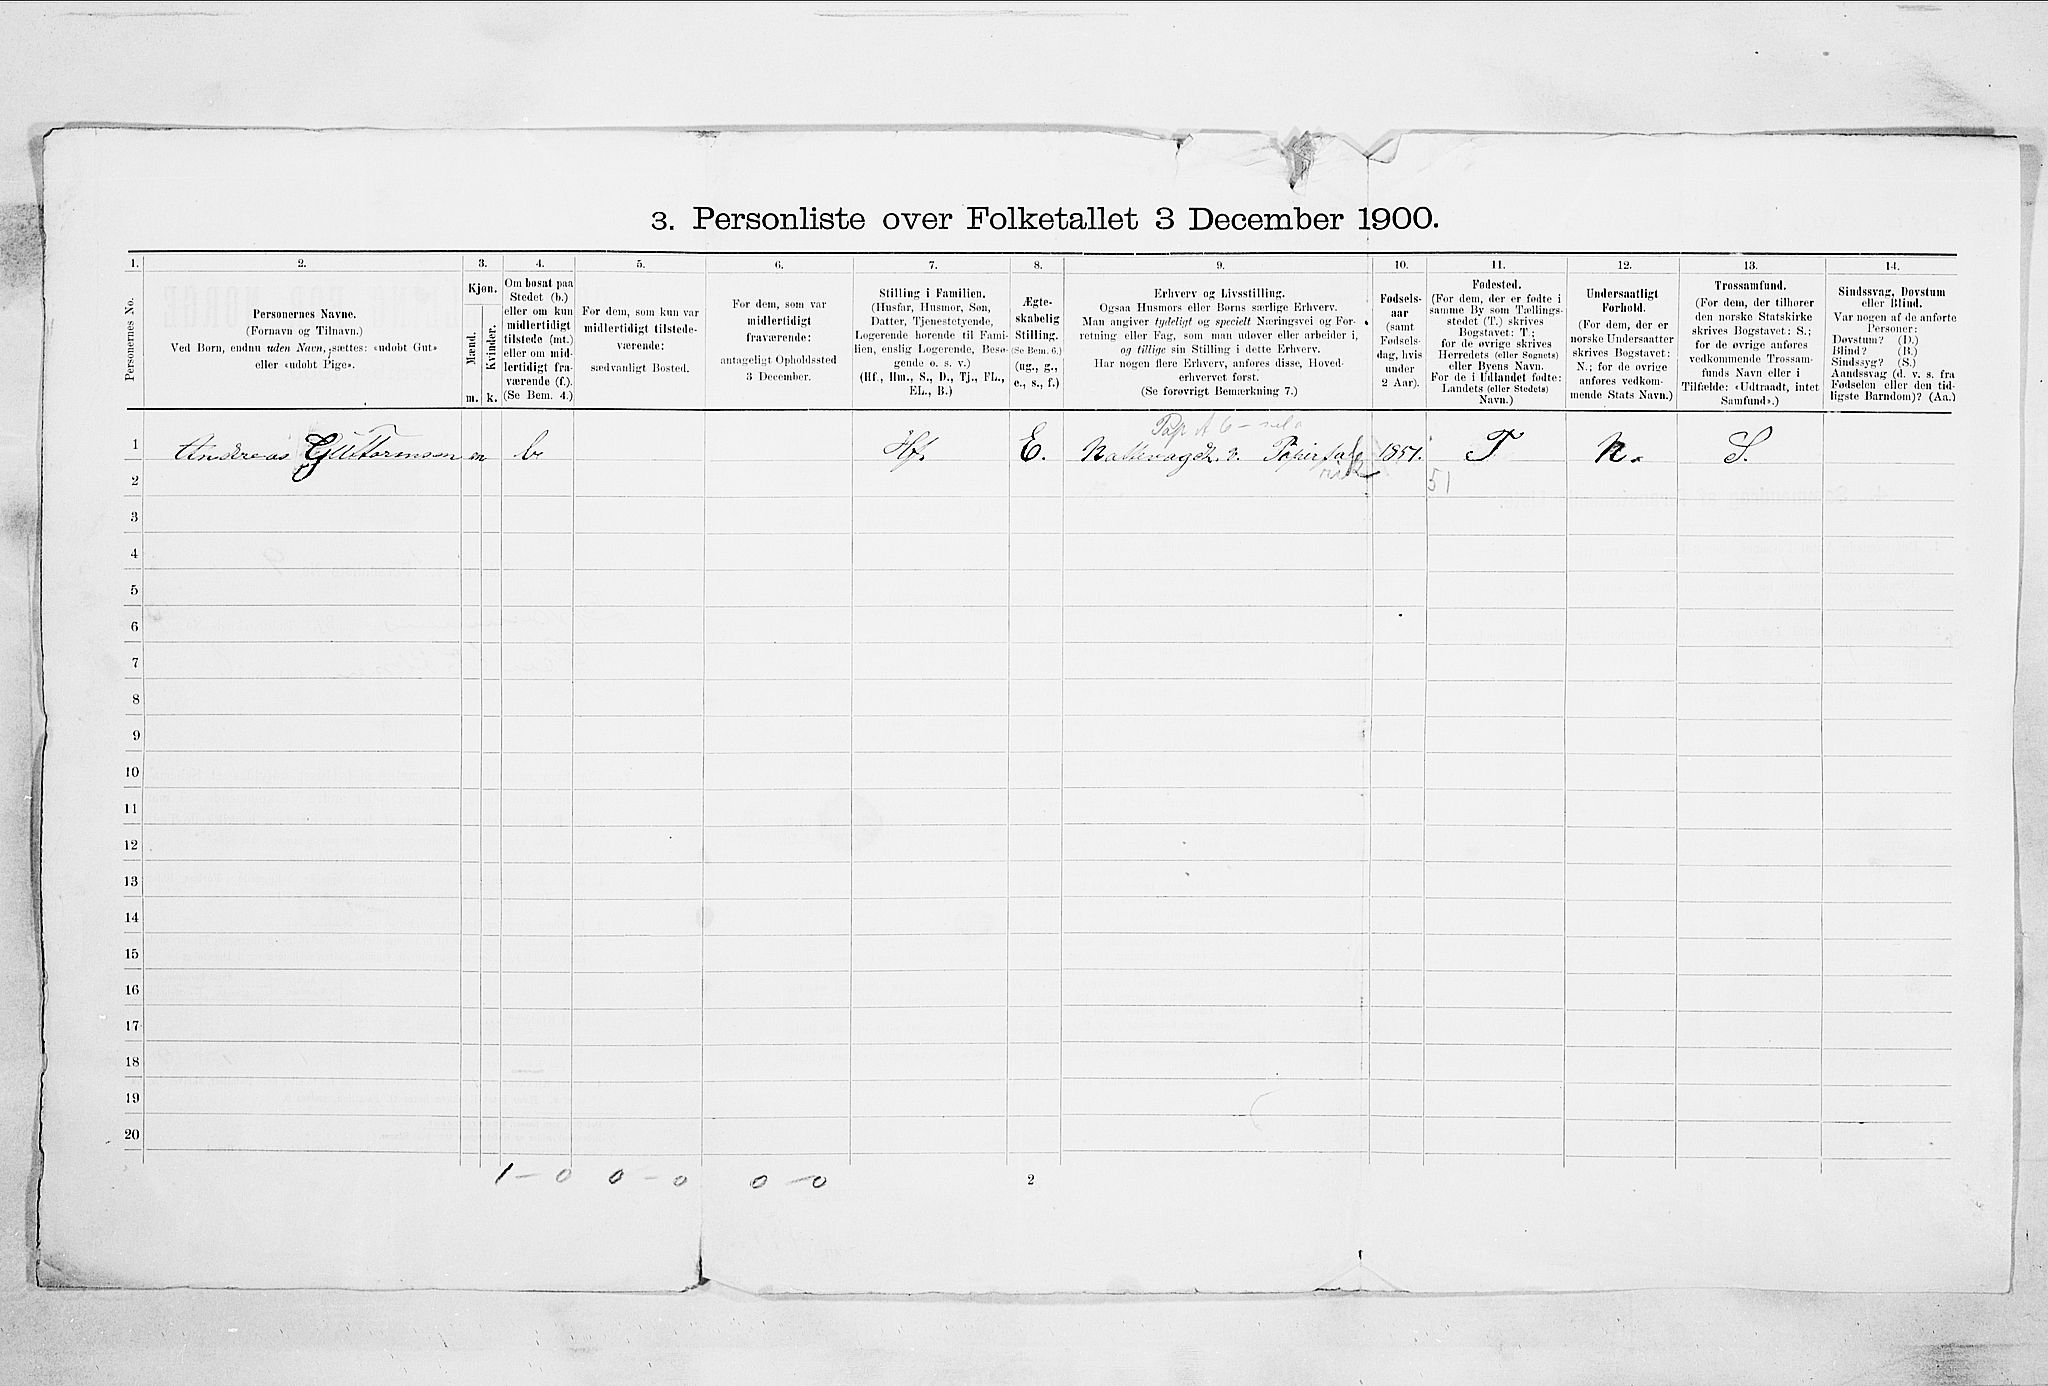 3. Personliste over Folketallet 3 December 1900.
1. 2. 3. 4. 5. 6. 7. 8. 9. 10. 11. 12. 13. 14.
Personernes No.
Personernes Navne.
(Fornavn og Tilnavn.)
Ved Børn, endnu uden Navn, sættes: «udøbt Gut»
eller «udøbt Pige».
Kjøn.
Mænd.
Kvinder.
m. k.
Om bosat paa
Stedet (b.)
eller om kun
midlertidigt
tilstede (mt.)
eller om mid-
lertidigt fra-
værende (f.).
(Se Bem. 4.)
For dem, som kun var
midlertidigt tilstede-
værende:
sædvanligt Bosted.
For dem, som var
midlertidigt
fraværende:
antageligt Opholdssted
3 December.
Stilling i Familien.
(Husfar, Husmor, Søn,
Datter, Tjenestetyende,
Logerende hørende til Fami-
lien, enslig Logerende, Besø-
gende o. s. v.)
(Hf., Hm., S., D., Tj., FL.,
EL., B.)
Ægte-
skabelig
Stilling.
(Se Bem. 6.)
(ug., g.,
e., s., f.)
Erhverv og Livsstilling.
Ogsaa Husmors eller Børns særlige Erhverv.
Man angiver tydeligt og specielt Næringsvei og For-
retning eller Fag, som man udøver eller arbeider i,
og tillige sin Stilling i dette Erhverv.
Har nogen flere Erhverv, anføres disse, Hoved-
erhvervet først.
(Se forøvrigt Bemærkning 7.)
Fødsels-
aar
(samt
Fødsels-
dag, hvis
under
2 Aar).
Fødested.
(For dem, der er fødte i
samme By som Tællings-
stedet (T.) skrives
Bogstavet: T;
for de øvrige skrives
Herredets (eller Sognets)
eller Byens Navn.
For de i Udlandet fødte:
Landets (eller Stedets)
Navn.)
Undersaatligt
Forhold.
(For dem, der er
norske Undersaatter
skrives Bogstavet:
N.; for de øvrige
anføres vedkom-
mende Stats Navn.)
Trossamfund.
(For dem, der tilhører
den norske Statskirke
skrives Bogstavet: S.;
for de øvrige anføres
vedkommende Trossam-
funds Navn eller i
Tilfælde: «Udtraadt, intet
Samfund».)
Sindssvag, Døvstum
eller Blind.
Var nogen af de anførte
Personer:
Døvstum? (D.)
Blind? (B.)
Sindssyg? (S.)
Aandssvag (d. v. s. fra
Fødselen eller den tid-
ligste Barndom)? (Aa.)
1 Andreas Guttormsen m b. Hf. E. Nattevagt v. Papirfab 1851. T N. S.
rik
51
2
3
4
5
6
7
8
9
10
11
12
13
14
15
16
17
18
19
20
1 – 0 0 – 0 0 – 0
2